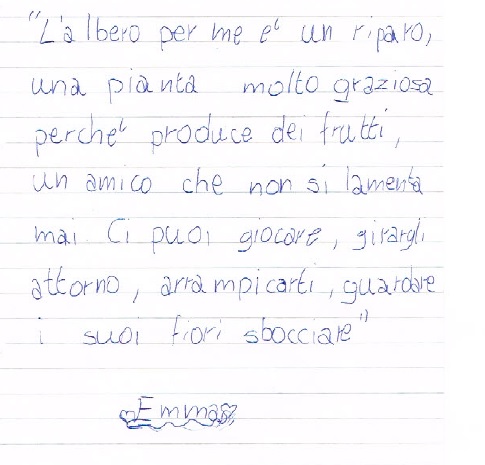 "L'albero per me e' un riparo,
una pianta molto graziosa
perche' produce dei frutti,
un amico che non si lamenta
mai Ci puoi giocare, girargli
attorno, arrampicarti, guardare
i suoi fiori sbocciare"
Emma